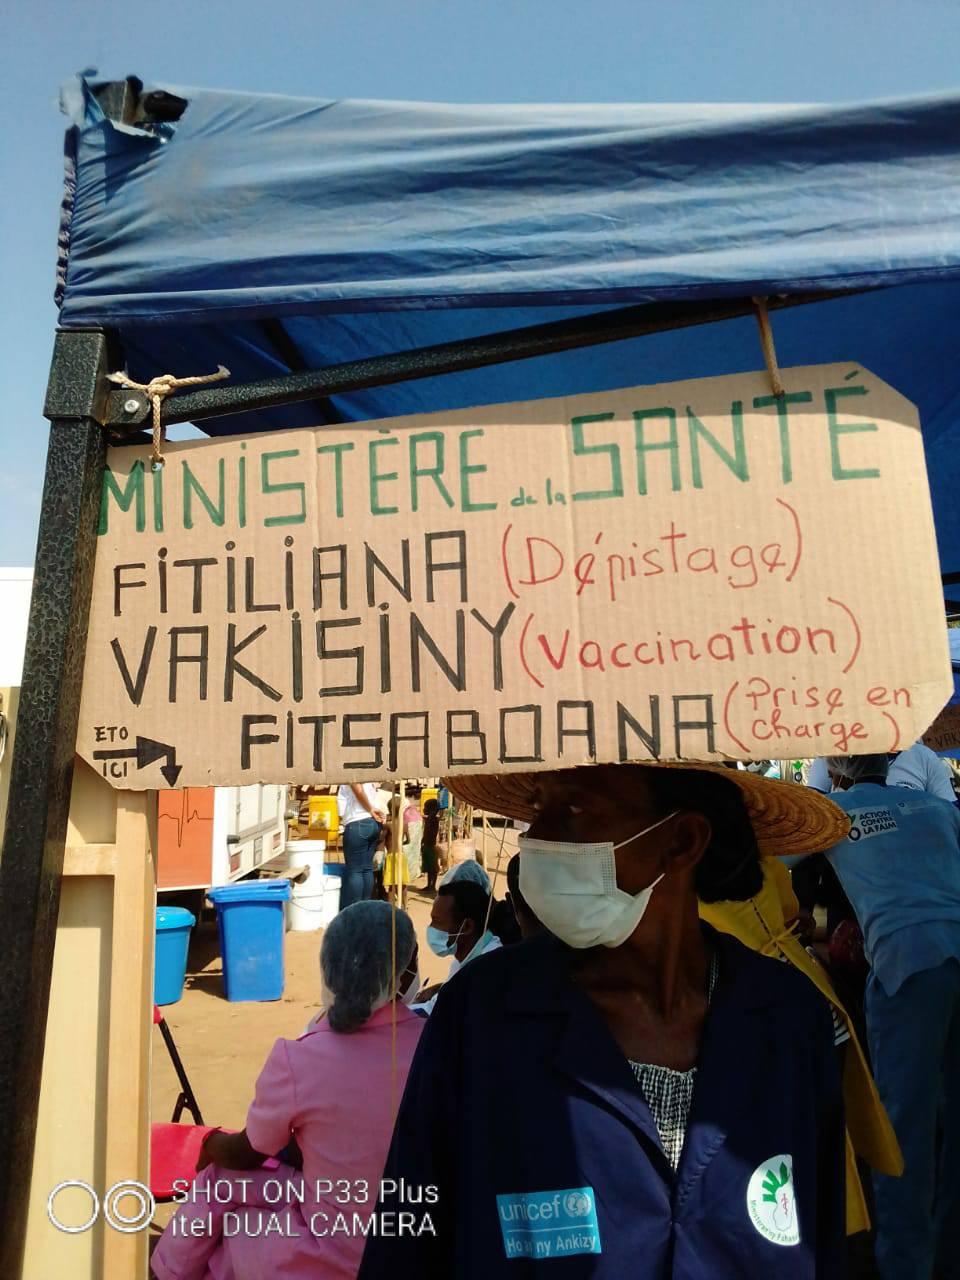 MINISTÈRE de la SANTÉ
FITILIANA (Dépistage)
VAKISINY (Vaccination)
FITSABOANA (Prise en
charge)
ETO
ICI
ACTION
CONTRE
LA FAIM
unicef
ny Ankizy
SHOT ON P33 Plus
itel DUAL CAMERA